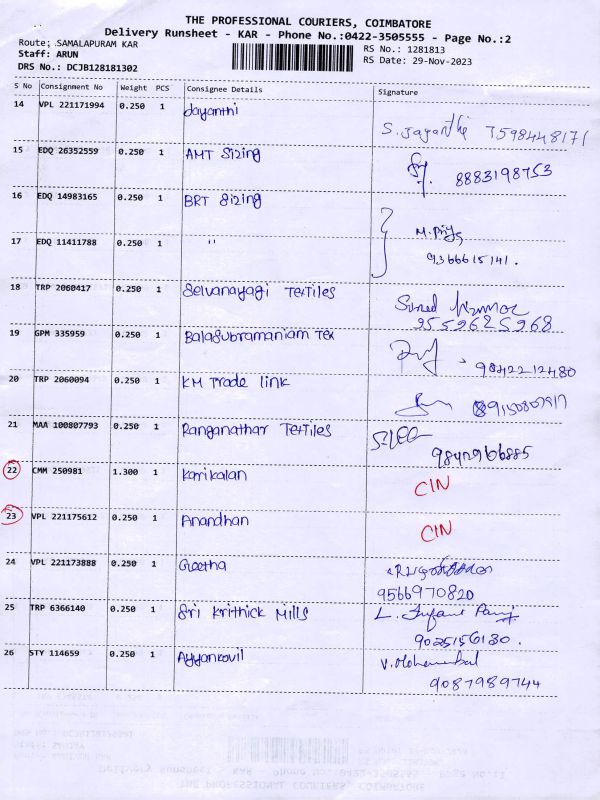 THE PROFESSIONAL COURIERS, COIMBATORE
Delivery Runsheet - KAR - Phone No.:0422-3505555 - Page No.:2
Route: SAMALAPURAM KAR
RS No.: 1281813
Staff: ARUN
RS Date: 29-Nov-2023
DRS No.: DCJB128181302
S No Consignment No Weight PCS Consignee Details Signature
14 VPL 221171994 0.250 1 Jayanthi
S. Jayanthi 7598448171
15 EDQ 26352559 0.250 1 AMT Sizing
8883198753
16 EDQ 14983165 0.250 1 BRT Sizing
17 EDQ 11411788 0.250 1 "
M. Priya
9366615141.
18 TRP 2060417 0.250 1 Selvanayagi Textiles
9559625968
19 GPM 335959 0.250 1 Balasubramaniam Tex
9842212480
20 TRP 2060094 0.250 1 KM Trade link
21 MAA 100807793 0.250 1 Ranganathar Textiles
9842966885
22 CMM 250981 1.300 1 Karrikalan CIN
23 VPL 221175612 0.250 1 Anandhan CIN
24 VPL 221173888 0.250 1 Geetha
9566970820
25 TRP 6366140 0.250 1 Sri Krithick Mills
9025156130.
26 STY 114659 0.250 1 Ayyankovil
9087989744